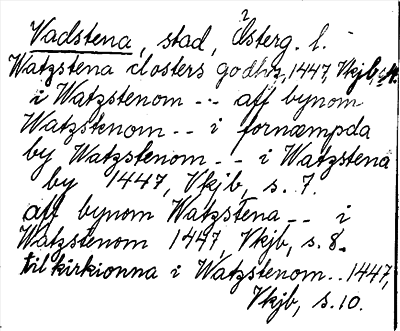 Vadstena, stad, Österg. l.
Watzstena closters godhz, 1447, Vkjb, s. 4.
i Watzstenom -- aff bynom
Watzstenom -- i fornæmpda
by Watzstenom -- i Watzstena
by 1447, Vkjb, s. 7.
aff bynom Watzstena -- i
Watzstenom 1447, Vkjb, s. 8.
til kirkionna i Watzstenom.. 1447,
Vkjb, s. 10.